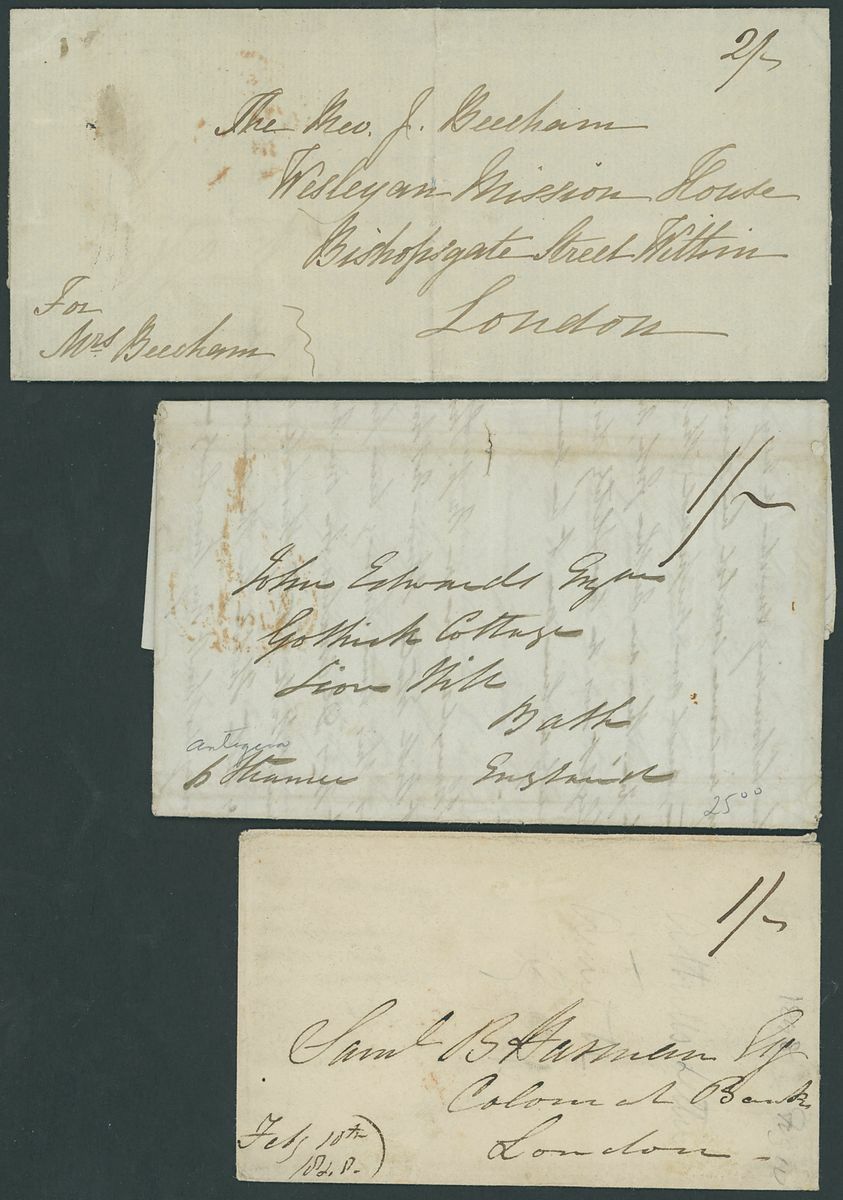 2/-
The Rev. J. Beecham
Wesleyan Mission House
Bishopsgate Street Within
London
For
Mrs Beecham
1/-
John Edwards Esqre
Gothick Cottage
Lion Hill
Bath
England
antigua
p Steamer
25⁰⁰
1/-
Saml B Harman Esq
Colonial Bank
London
Feby 10th
1848.